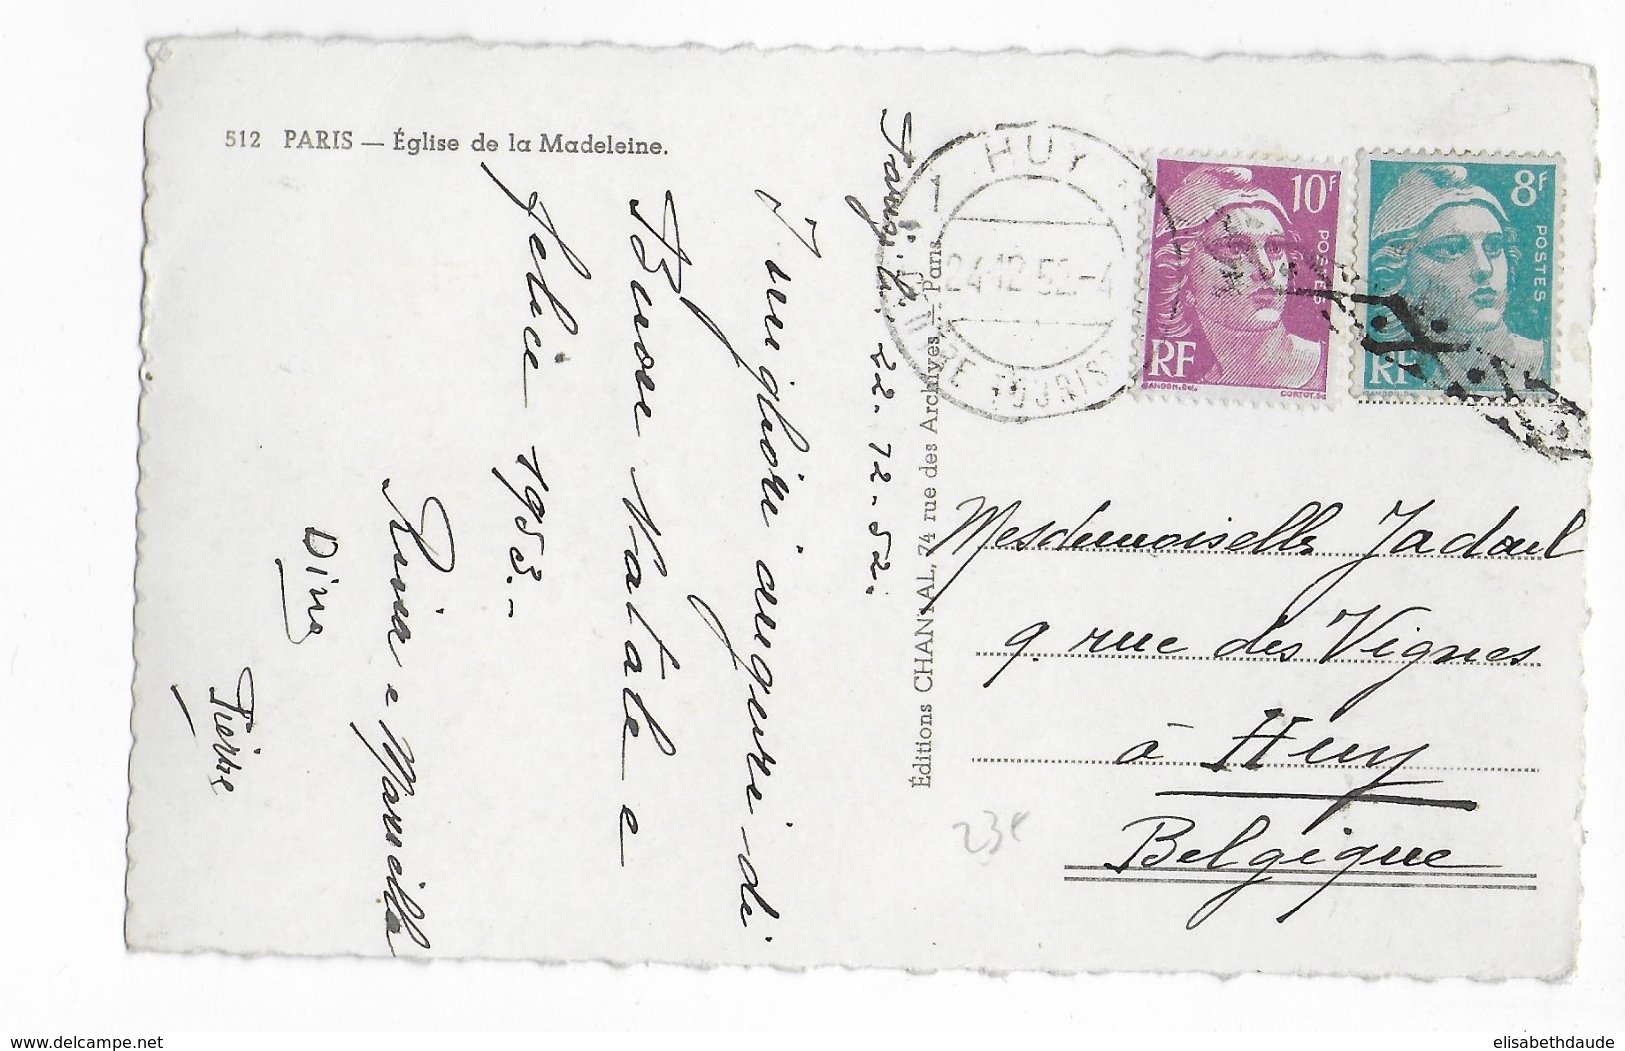 512 PARIS — Église de la Madeleine.
Parigi, li 22.12.52.
I migliori auguri di
Buon Natale e
felice 1953.-
Rina e Marcella
Dina
Pierre
Éditions CHANTAL, 74 rue des Archives — Paris
HUY
24-12 52-4
TOURIS
10F
POSTES
RF
GANDON.Del.
CORTOT.Sc
8F
POSTES
RF
Mesdemoiselles Jadoul
9. rue des Vignes
à Huy
Belgique
23€
www.delcampe.net
elisabethdaude